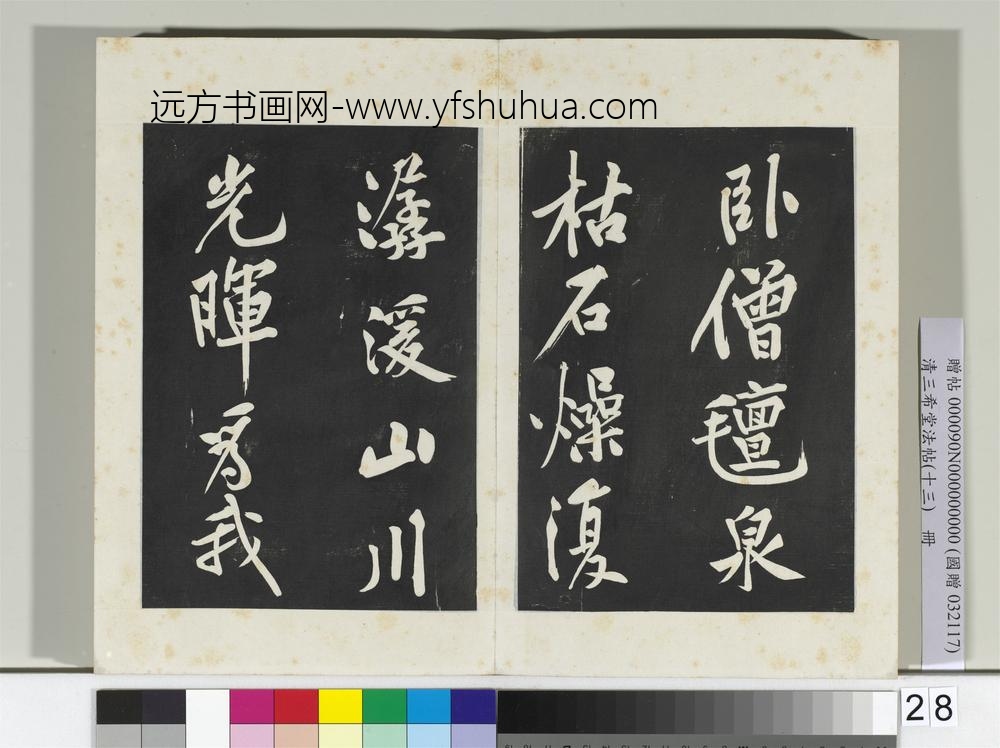 远方书画网-www.yfshuhua.com
卧僧氈泉
枯石燥復
潺湲山川
光暉為我
贈帖 000090N000000000 (國贈 032117)
清三希堂法帖(十三) 冊
28